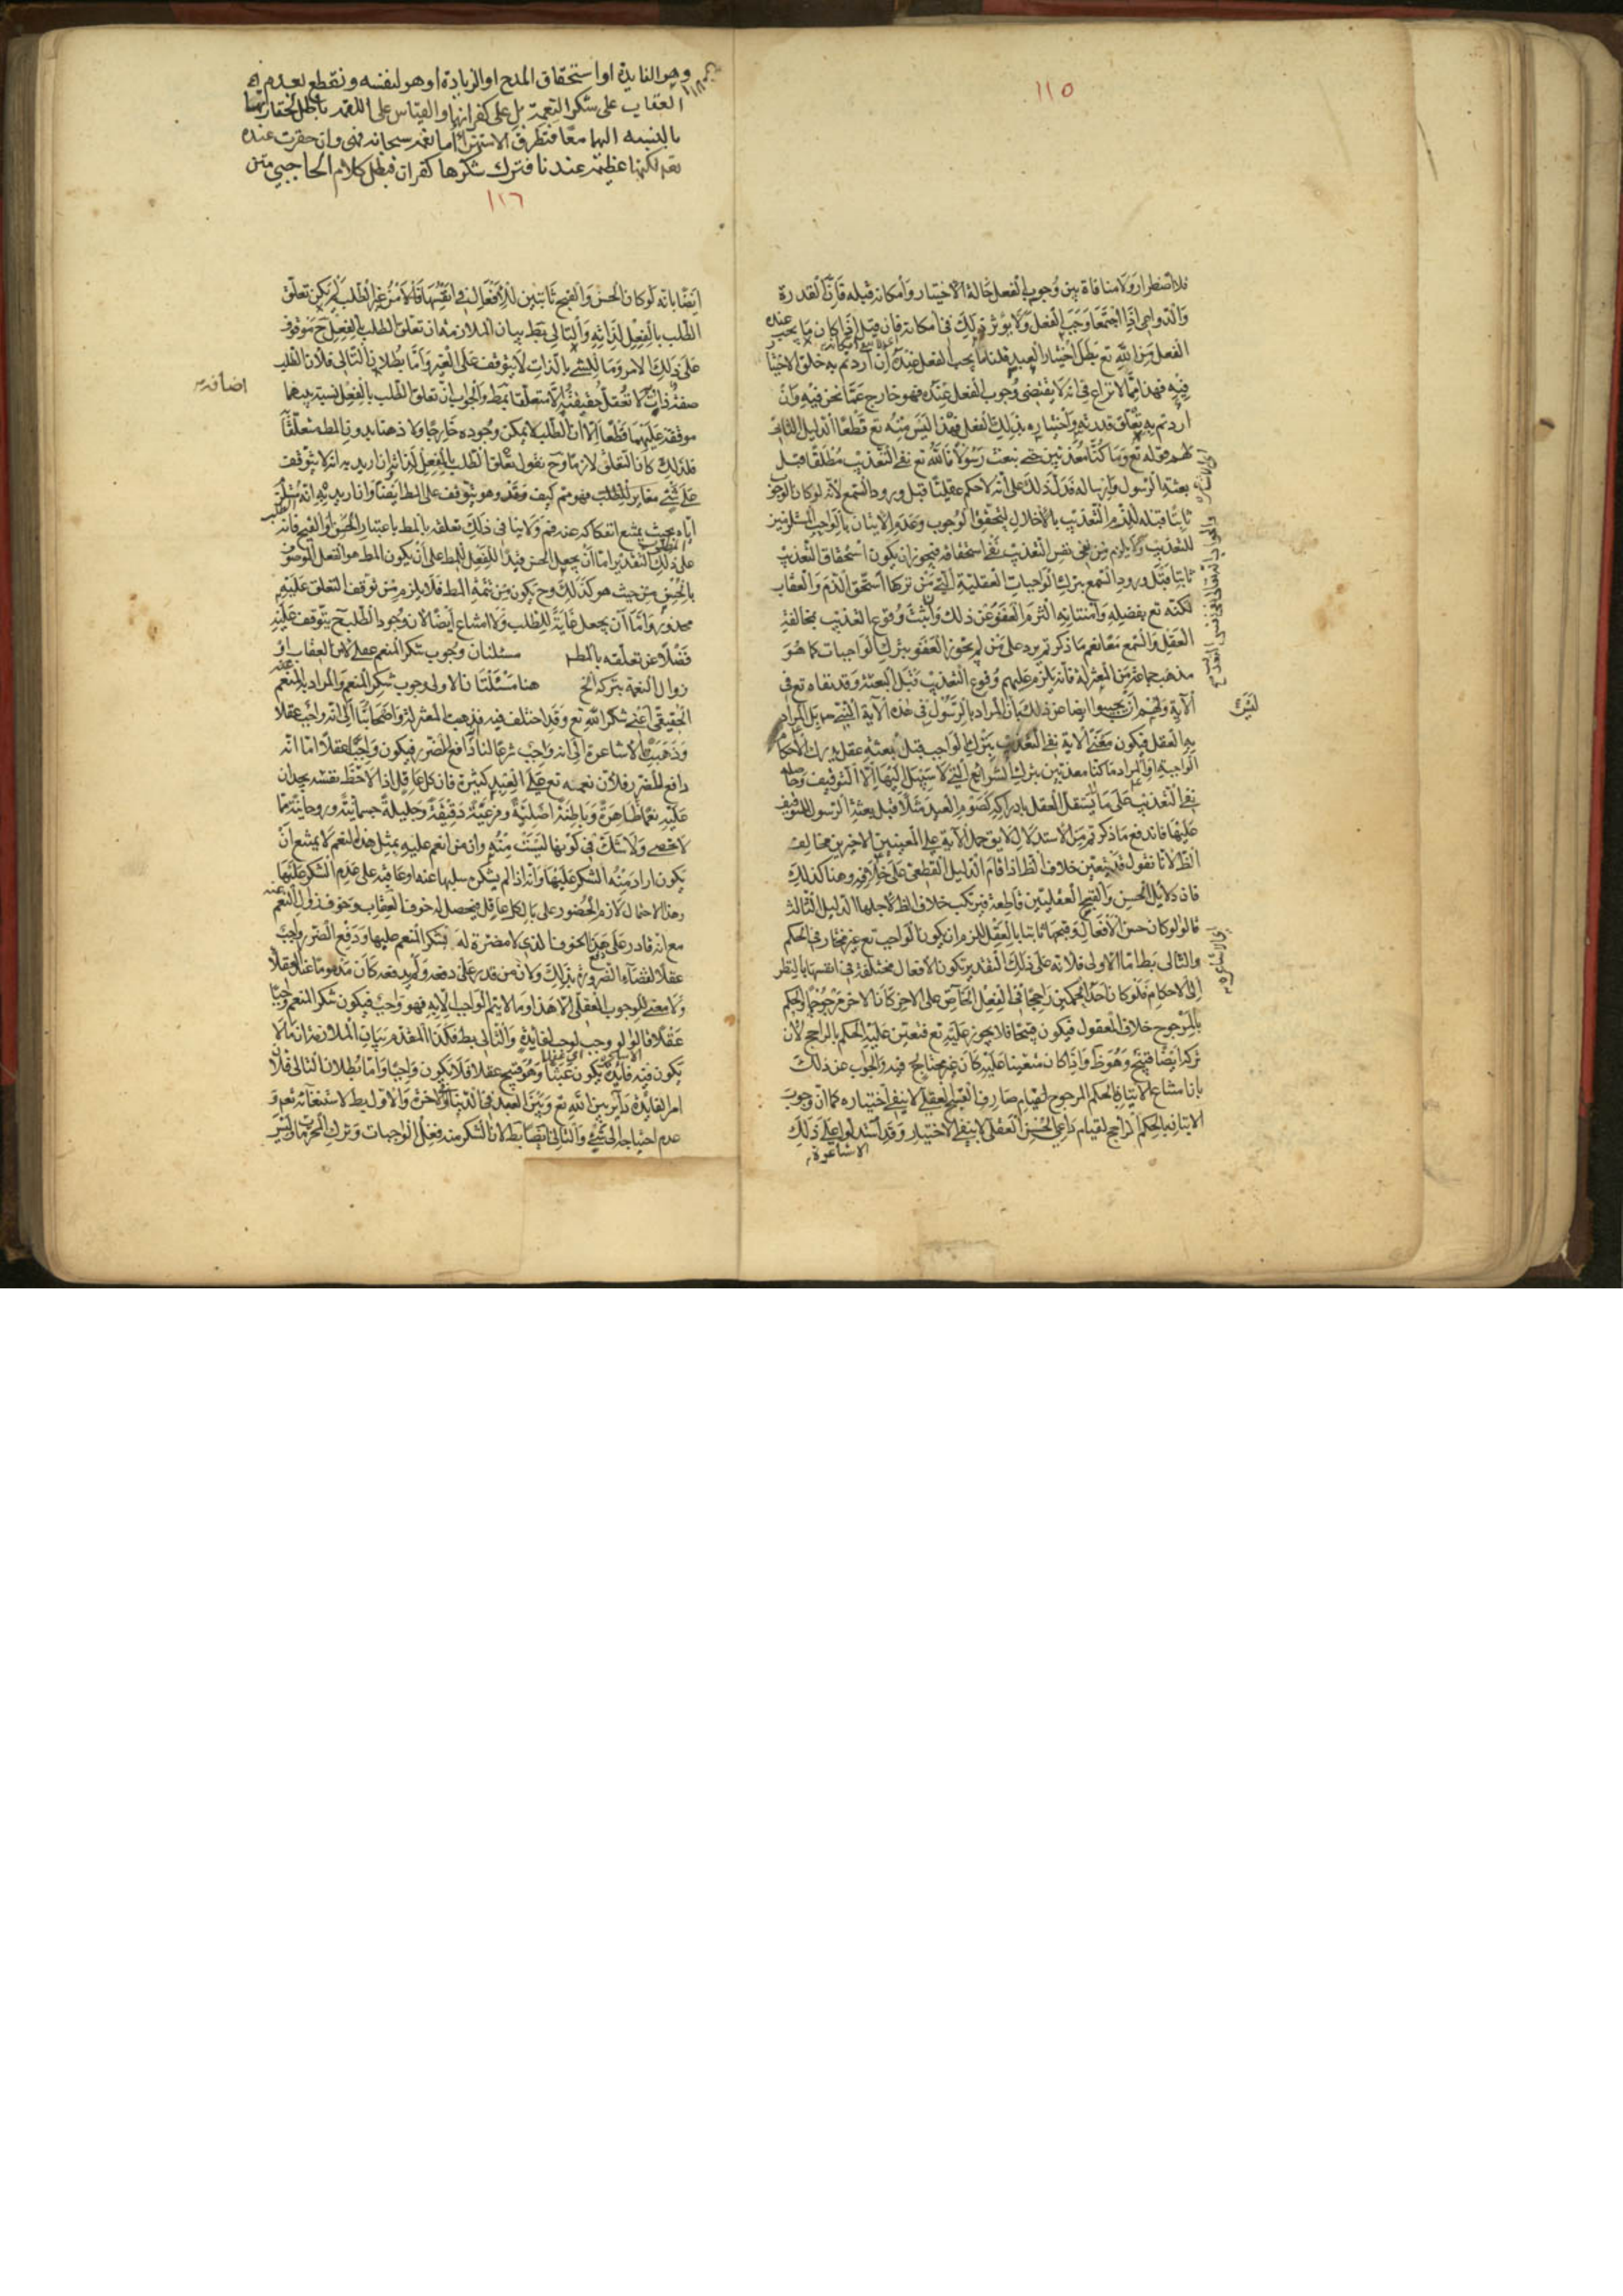 ١١٥
فلا اضطرار ولا منافاة بين وجوب الفعل حالة الاختيار وامكانه قبله فان القدرة
والدواعى اذا اجتمعا وجب الفعل ولا يؤثر ذلك فى امكانه فان قيل اذا كان ما يجب عنده
الفعل من الله تع بطل اختيار العبد قلنا ما يجب الفعل عنده ان اردتم به خلق الاختيا
فيه فهذا مما لا نزاع فى انه لا يقتضى وجوب الفعل عنده فهو خارج عما نحن فيه وان
اردتم به تعلق قدرته واختياره بذلك الفعل فهذا ليس منه تع قطعا الدليل الثانى
لهم قوله تع وما كنا معذبين حتى نبعث رسولا فالله تع نفى التعذيب مطلقا قبل
بعثة الرسول وارساله فدل ذلك على انه لا حكم عقليا قبل ورود السمع لانه لو كان الوجوب
ثابتا قبله للزم التعذيب بالاخلال لتحقق الوجوب وعدم الاتيان بالواجب المستلزمين
للتعذيب ولا يلزم من نفى نفس التعذيب نفى استحقاقه فيجوز ان يكون استحقاق التعذيب
ثابتا قبل ورود السمع بترك الواجبات العقلية التى من تركها استحق الذم والعقاب
لكنه تع بفضله وامتنانه التزم العفو عن ذلك واثبت وقوع التعذيب بمخالفة
العقل والسمع معا نعم ما ذكرتم يرد على من لم يجوز العفو بترك الواجبات كما هو
مذهب جماعة من المعتزلة فانه يلزم عليهم وقوع التعذيب قبل البعثة وقد نفاه تع فى
الآية ولهم ان يجيبوا ايضا عن ذلك بان المراد بالرسول فى هذه الآية
به العقل فيكون معنى الاية نفى التعذيب بترك الواجب قبل بعثة عقل يدرك الاحكا
الواجبة او المراد ما كنا معذبين بترك الشرائع التى لا سبيل اليها الا التوقيف
نفى التعذيب على ما لا يستقل العقل بادراكه كصوم العيد مثلا قبل بعثة الرسول للتوقيف
عليها فاندفع ما ذكرتم من الاستدلال لا يق حمل الآية على المعنيين الاخيرين مخالف
الظ لانا نقول قد يتعين خلاف الظ اذا قام الدليل القطعى على خلافه وهنا كذلك
فان دلايل الحسن والقبح العقليين قاطعة فيرتكب خلاف الظ لاجلها الدليل الثالث
قالوا لو كان حسن الافعال وقبحها ثابتا بالعقل للزم ان يكون الواجب تع غير مختار فى الحكم
والتالى بط اما الاولى فلانه على ذلك التقدير تكون الافعال مختلفة فى انفسها بالنظر
الى الاحكام فلو كان احد الحكمين راجحا فى الفعل الخاص على الاخر كان الاخر مرجوحا والحكم
بالمرجوح خلاف المعقول فيكون قبيحا فلا يجوز عليه تع فتعين عليه الحكم بالراجح لان
تركه ايضا قبيح وهو ظ واذا كان متعينا عليه كان غير مختار فيه والجواب عن ذلك
بان امتناع الاتيان بالحكم المرجوح لقيام صارف القبح العقلى لا ينفى اختياره كما ان وجوب
الاتيان بالحكم الراجح لقيام داعى الحسن العقلى لا ينفى الاختيار وقد استدلوا على ذلك
الاشاعرة
وهو الفايدة او استحقاق المدح او الزيادة او هو لنفسه ونقطع بعدم
العقاب على شكر النعمة بل على كفرانها والقياس على اللقمة باطل لحقارتها
بالنسبة اليهما معا فتطرق الاستهزاء اما نعمه سبحانه فهى وان حقرت عنده
تعم لكنها عظيمة عندنا فترك شكرها كفران فبطل كلام الحاجبى متن
١١٦
ايضا بانه لو كان الحسن والقبح ثابتين للافعال فى انفسها لم يكن تعلق
الطلب بالفعل لذاته والتالى بط بيان الملازمة ان تعلق الطلب بالفعل ح موقوف
على ذلك الامر وما للشئ بالذات لا يتوقف على الغير واما بطلان التالى فلان الطلب
صفة ذات لا تعقل حقيقته الا متعلقا بمط والجواب ان تعلق الطلب بالفعل نسبة بينهما
اضافة
موقوفة عليهما قطعا الا ان الطلب لا يمكن وجوده خارجا ولا ذهنا بدون المط متعلقا
فلذلك كان التعلق لازما وح نقول تعلق الطلب بالفعل لذاته ان اريد به انه لا يتوقف
على شئ مغاير للطلب فهو مم كيف وهو يتوقف على المط ايضا وان اريد به انه مستلزم
اياه بحيث يمتنع انفكاكه عنه فم ولا ينافى ذلك تعلقه بالمط باعتبار الحسن او القبح فانه
على ذلك التقدير اما ان يجعل الحسن قيدا للفعل المط على ان يكون المط هو الفعل الموصوف
بالحسن من حيث هو كذلك وح يكون من تتمة المط فلا يلزم من توقف التعلق عليه
محذور واما ان يجعل غاية للطلب ولا امتناع ايضا لان وجود الطلب ح يتوقف عليه
فضلا عن تعلقه بالمط مسئلتان وجوب شكر المنعم عقلى لامن العقاب او
زوال النعمة بتركه الخ هنا مسئلتان الاولى وجوب شكر المنعم والمراد بالمنعم
الحقيقى اعنى شكر الله تع وقد اختلف فيه فذهب المعتزلة واصحابنا الى انه واجب عقلا
وذهب الاشاعرة الى انه واجب شرعا لنا انه دافع للضرر فيكون واجبا عقلا اما انه
دافع للضرر فلان نعمه تع على العبد كثيرة فان كل عاقل اذا لاحظ نفسه يجد ان
عليه نعما ظاهرة وباطنة اصلية وفرعية دقيقة وجليلة جسمانية وروحانية مما
لا تحصى ولا شك فى كونها ليست منه وان من انعم عليه بمثل هذه النعم لا يمتنع ان
يكون اراد منه الشكر عليها وانه اذا لم يشكر سلبها عنه او عاقبه على عدم الشكر عليها
وهذا الاحتمال لازم الحضور على بال كل عاقل فيحصل له خوف العقاب وخوف زوال النعم عنه
مع انه قادر على دفع هذا الخوف الذى لا مضرة له بشكر المنعم عليها ودفع الضرر واجب
عقلا لقضاء الضرورة بذلك ولان من قدر على دفعه ولم يدفعه كان مذموما عند العقلا
ولا معنى للوجوب العقلى الا هذا وما لا يتم الواجب الا به فهو واجب فيكون شكر المنعم واجبا
عقلا قالوا لو وجب لوجب لفايدة والتالى بط فكذا المقدم بيان الملازمة ان ما لا
يكون فيه فايدة يكون عبثا وهو قبيح عقلا فلا يكون واجبا واما بطلان التالى فلان
امر الفايدة داير بين الله تع وبين العبد فى الدنيا والاخرة والاول بط لاستغنائه تعم و
عدم احتياجه الى شئ والثانى ايضا بط لان الشكر منه فعل الواجبات وترك المحرمات وليس